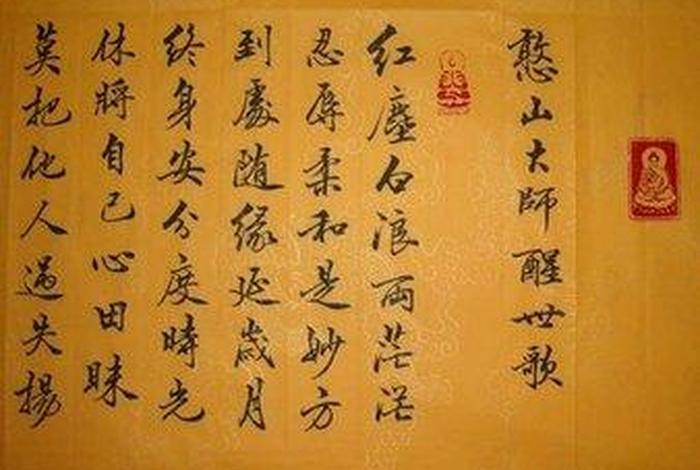 憨山大師醒世歌
红塵白浪两茫茫
忍辱柔和是妙方
到處随緣延歲月
终身安分度時光
休將自己心田昧
莫把他人過失揚